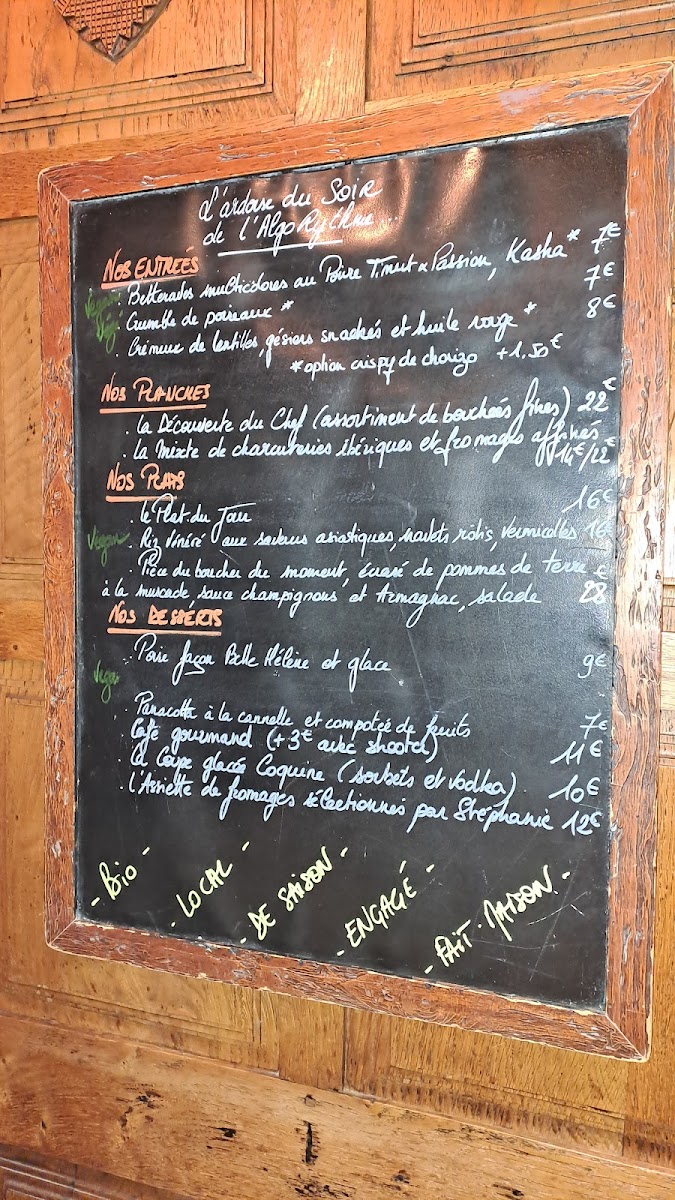 L'ardoise du Soir
de l'AlgoRythme...
NOS ENTRÉES
Vegan . Betteraves multicolores au Poivre Timut & Passion, Kasha* 7€
Végé . Crumble de poireaux * 7€
. Crémeux de lentilles, gésiers snackés et huile rouge * 8€
*option crispy de chorizo +1,50€
NOS PLANCHES
. La Découverte du Chef (assortiment de bouchées fines) 22€
. La Mixte de charcuteries ibériques et fromages affinés
14€/22€
NOS PLATS
. Le Plat du Jour 16€
Vegan . Riz Vénéré aux saveurs asiatiques, navets rôtis, vermicelles 16€
. Pièce du boucher du moment, écrasé de pommes de terre
à la muscade sauce champignons et Armagnac, salade 28€
NOS DESSERTS
. Poire façon Belle Hélène et glace 9€
Vegan
. Panacotta à la cannelle et compotée de fruits 7€
Café gourmand (+3€ avec shooter) 11€
. La Coupe glacée Coquine (sorbets et vodka) 10€
. L'Assiette de fromages sélectionnés par Stéphanie 12€
- Bio -
- LOCAL -
- DE SAISON -
- ENGAGÉ -
- FAIT MAISON -